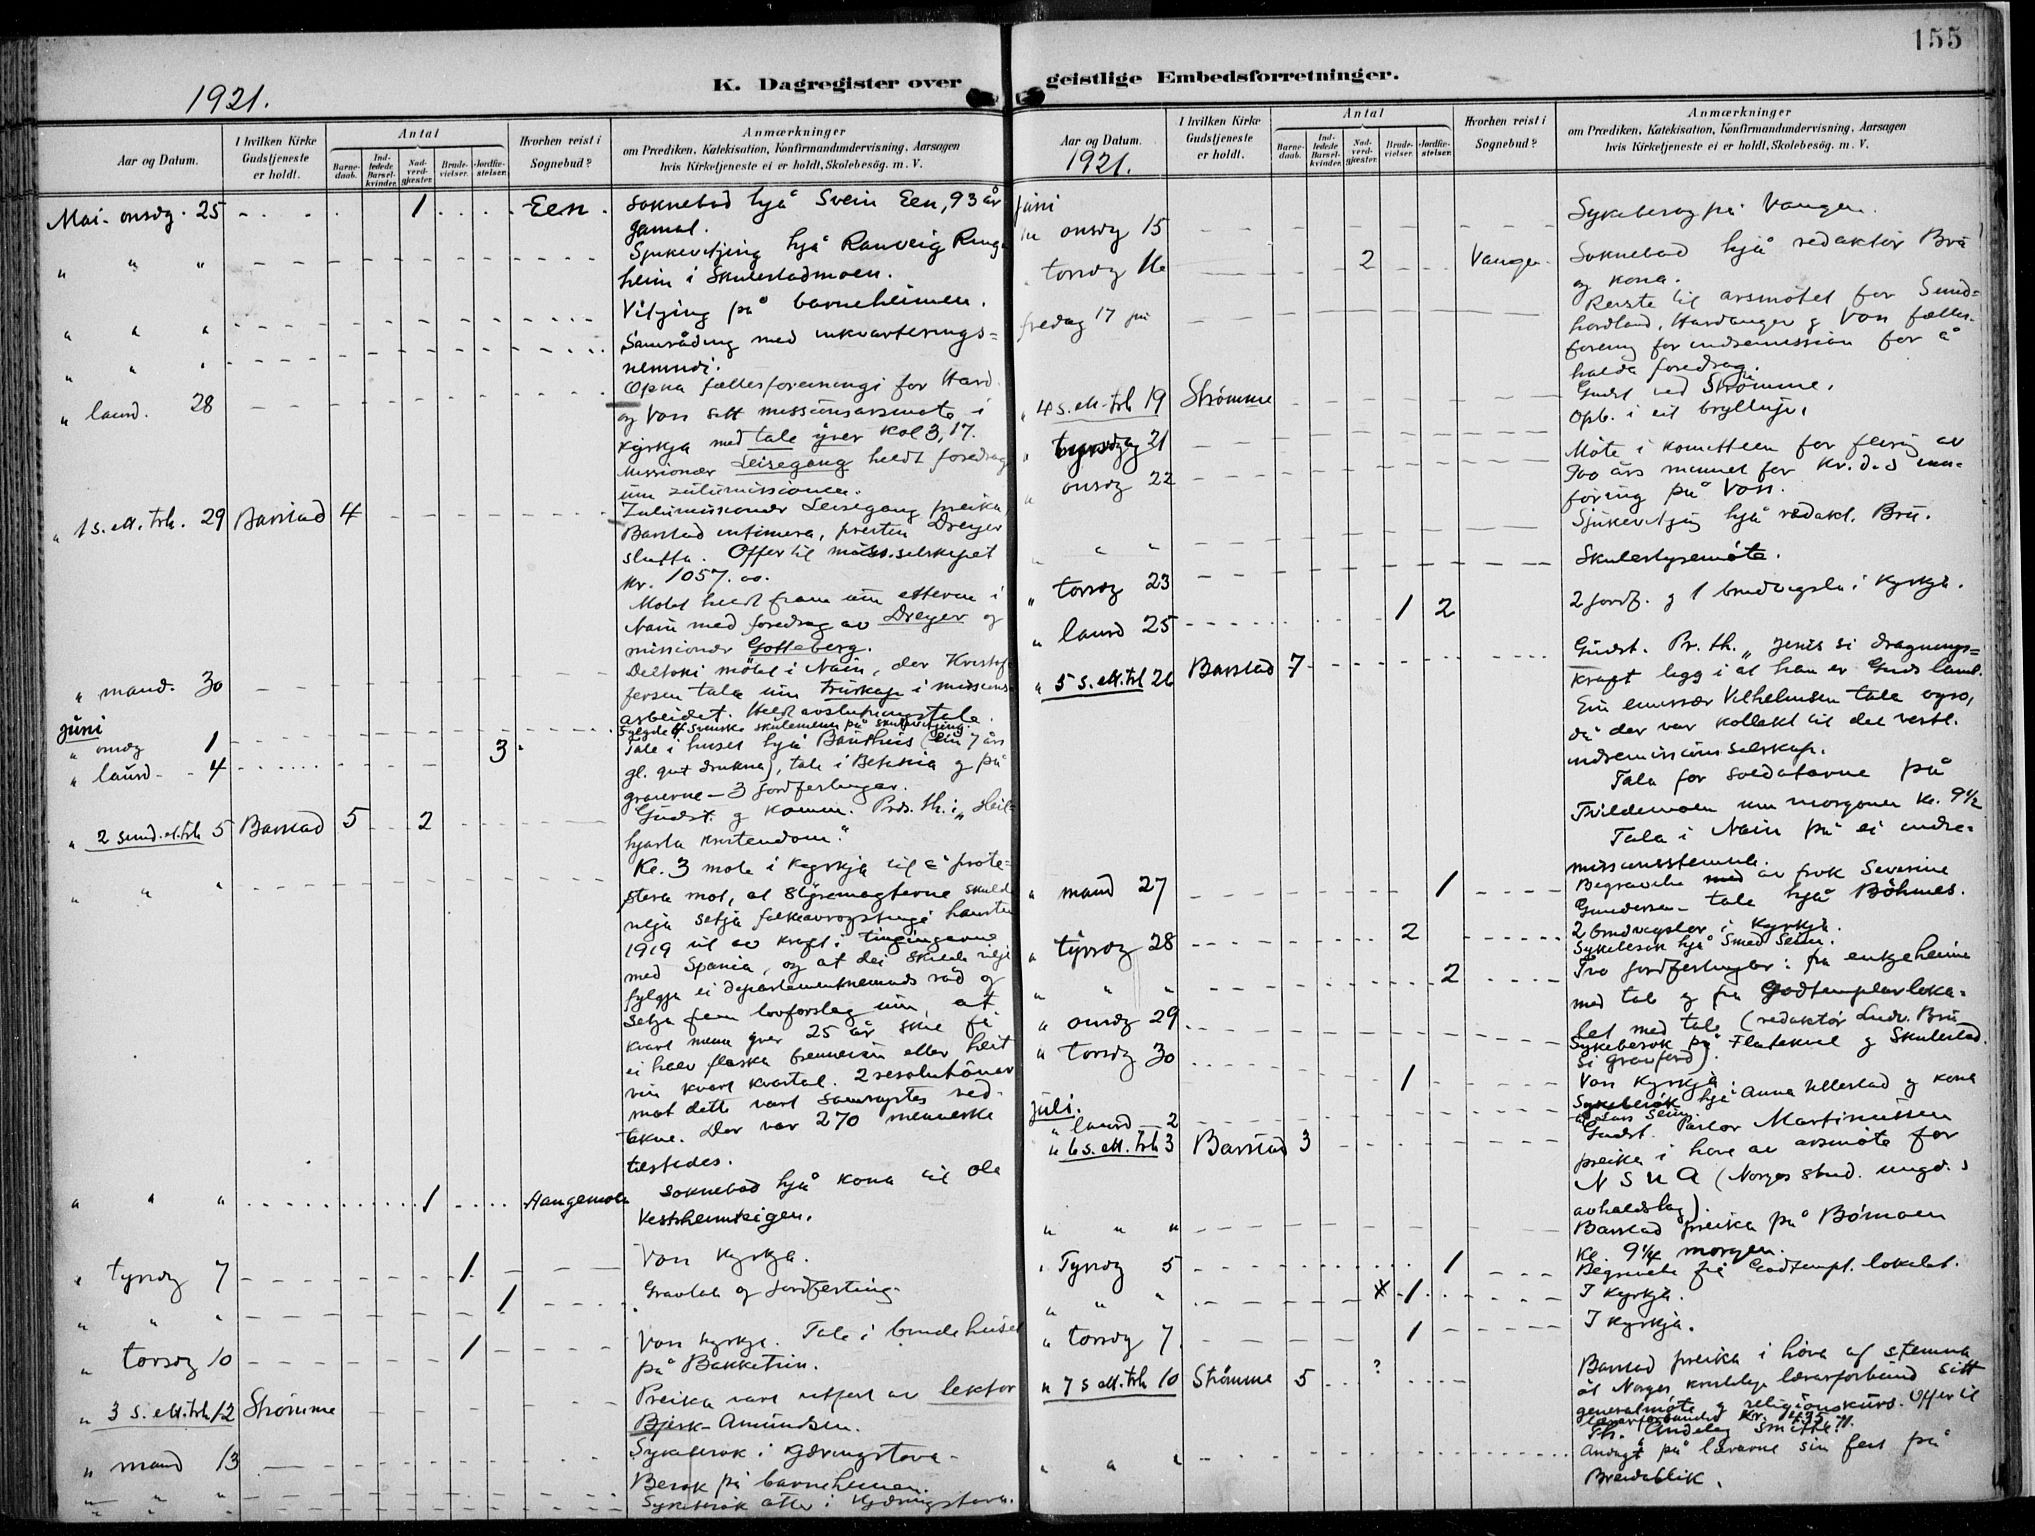 155
K. Dagregister over geistlige Embedsforretninger.
1921.
Aar og Datum.
I hvilken Kirke Gudstjeneste er holdt.
Antal
Barnedaab.
Indledede Barselkvinder.
Nadverdgjæster.
Brudevielser.
Jordfæstelser.
Hvorhen reist i Sognebud?
Anmærkninger
om Prædiken, Katekisation, Konfirmandundervisning, Aarsagen
hvis Kirketjeneste ei er holdt, Skolebesøg. m. V.
Mai. onsdg. 25 1 Een. Soknebod hjå Svein Een, 93 år
gamal.
" " " Sjukevitjing hjå Ranveig Ring
heim i Skulestadmoen.
" " " Vitjing på barneheimen.
" " " Samråding med inkvarterings=
nemndi.
" laurd. 28 Opna fællesforeiningi for Hard.
og Voss sitt missionsarsmøte i
Kyrkja med tale yver Kol 3,17.
Missionær Leisegang heldt foredrag
um zulumissionen.
" 1 s. ett. trh. 29 Barstad 4 Zulumissionær Leisegang preika
Barstad intimera, presten Dreyer
slutta. Offer til miss.selskapet
kr. 1057.00.
Møtet heldt fram um etterm i
Nain med foredrag av Dreyer og
missionær Gotteberg.
" mand. 30 Deltoki møtet i Nain, der Kristof=
fersen tala um truskap i missions=
arbeidet. Heldt avslutningstale.
juni
" onsdg 1 Fylgde 4 svenske skulemenn på skulevitjing.
" laurd. 4 3 Tale i huset hjå Bauthus (ein 7 års
gl. gut drukna), tale i Bekkia og på
graverne – 3 jordfestingar.
" 2 sund. et. trh 5 Barstad 5 2 Gudst. og komm. Præs. th.: "Heil=
hjarta kristendom".
" " " Kl. 3 møte i Kyrkja til å prote=
stera mot, at styremagterne skulde
vilja setja folkeavrøystingi hausten
1919 ut av kraft i tingingarne
med Spania, og at dei skulde vilje
fylgja ei departementnemnds råd og
setja fram lovforslag um, at
kvart menn yver 25 år skal få
ei halv flaska brennevin eller heit
vin kvart kvartal. 2 resolutioner
mot dette vart samrøystes ved-
tekne. Der var 270 menneske
tilstades.
" " " 1 Haugamoen Soknebod hjå kona til Ole
Vestrheimteigen.
" tysdg 7 1 Voss Kyrkja.
" " " 1 Gravtale og jordfesting.
" torsdg 10 1 Voss kyrkje. Tale i brudehuset
på Bakketun.
" 3 s. ett. trh. 12 Strømme Preika vart utført av lektor
Bjerk-Amundsen.
" mand 13 Sykebesøk i Gjæringstova.
Besøk på barneheimen.
" " " Sykebesøk atter i Gjæringstova.
Aar og Datum.
1921.
I hvilken Kirke Gudstjeneste er holdt.
Antal
Barnedaab.
Indledede Barselkvinder.
Nadverdgjæster.
Brudevielser.
Jordfæstelser.
Hvorhen reist i Sognebud?
Anmærkninger
om Prædiken, Katekisation, Konfirmandundervisning, Aarsagen
hvis Kirketjeneste ei er holdt, Skolebesøg. m. V.
juni
onsdg 15 Sykebesøg på Vangen.
torsdg 16 2 Vangen Soknebod hjå redaktør Bru
og kona.
fredag 17 Reiste til arsmøtet for Sund=
hordland, Hardanger og Voss fælles-
forening for indremission for å
halda foredrag.
" 4 s. ett. trh 19 Strømme Gudst ved Strømme.
Opb. i eit bryllup.
" tysdag 21 Møte i komitteen for feiring av
900 års minnet for Kr.d.s inn-
føring på Voss.
" onsdg 22 Sjukevitjing hjå redakt. Bru.
" " Skulestyremøte.
" torsdg 23 2 jordf. og 1 brudvigsla i Kyrkja.
" laurd 25 1 2
" 5 s. ett. trh 26 Barstad 7 Gudst. Pr. th. "Jesus si dragnings=
kraft ligg i at han er Guds lamb.
Ein emissær Vilhelmsen tala ogso,
då der var kollekt til det vestl.
indremissionsselskap.
Tala for soldatarne på
Tvildemoen um morgonen kl. 9 1/2
Tala i Nain på ei indre=
missionsstemna.
" mand 27 1 Begravelse av frøk Severine
Gundersen – tale hjå Böhmes.
" tysdg 28 2 2 brudvigsler i Kyrkja.
Sykebesøk hjå Smed Seim.
" " " 2 Tvo jordfestingar: frå enkjeheimen
med tale og frå Godtemplarloka=
let med tale (redaktør Ludv. Bru
si gravferd).
" onsdg 29 Sykebesøk på Flatekval og Skulestad.
" torsdg 30 1 Voss Kyrkja
juli.
" laurd 2 Sykebesøk hjå Anna Ullestad og kona
Lars Seim.
" 6 s. ett. trh 3 Barstad 3 Gudst. Pastor Martinussen
preika i høve av arsmøte for
N S U A (Norges stud. ungd.s
avhaldslag).
" " " Barstad preika på Bömoen
kl. 9 1/4 morgen.
" Tysdg 5 1 Begravelse frå Godtempl. lokalet.
" " " 1 I Kyrkja.
" torsdg 7. 1 I Kyrkja.
" 7 s ett. trh 10 Strømme 5 ? Barstad preika i høve af stemna
åt Norges kristelege lærarforbund sitt
generalmøte og religionskurs. Offer til
lærarforbundet Kr. 435.71.
Th. Andeleg smitte.
" " " Andagt på lærarne sin fest på
Breidablik.